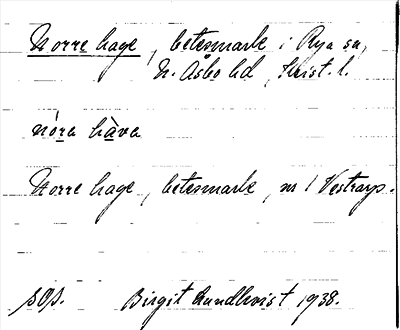 Norre hage, betesmark i Rya sn,
N. Åsbo hd, Krist. l.
nóra hàva
Norre hage, betesmark, nr 1 Vestraryp.
sOp. Birgit Lundkvist 1938.